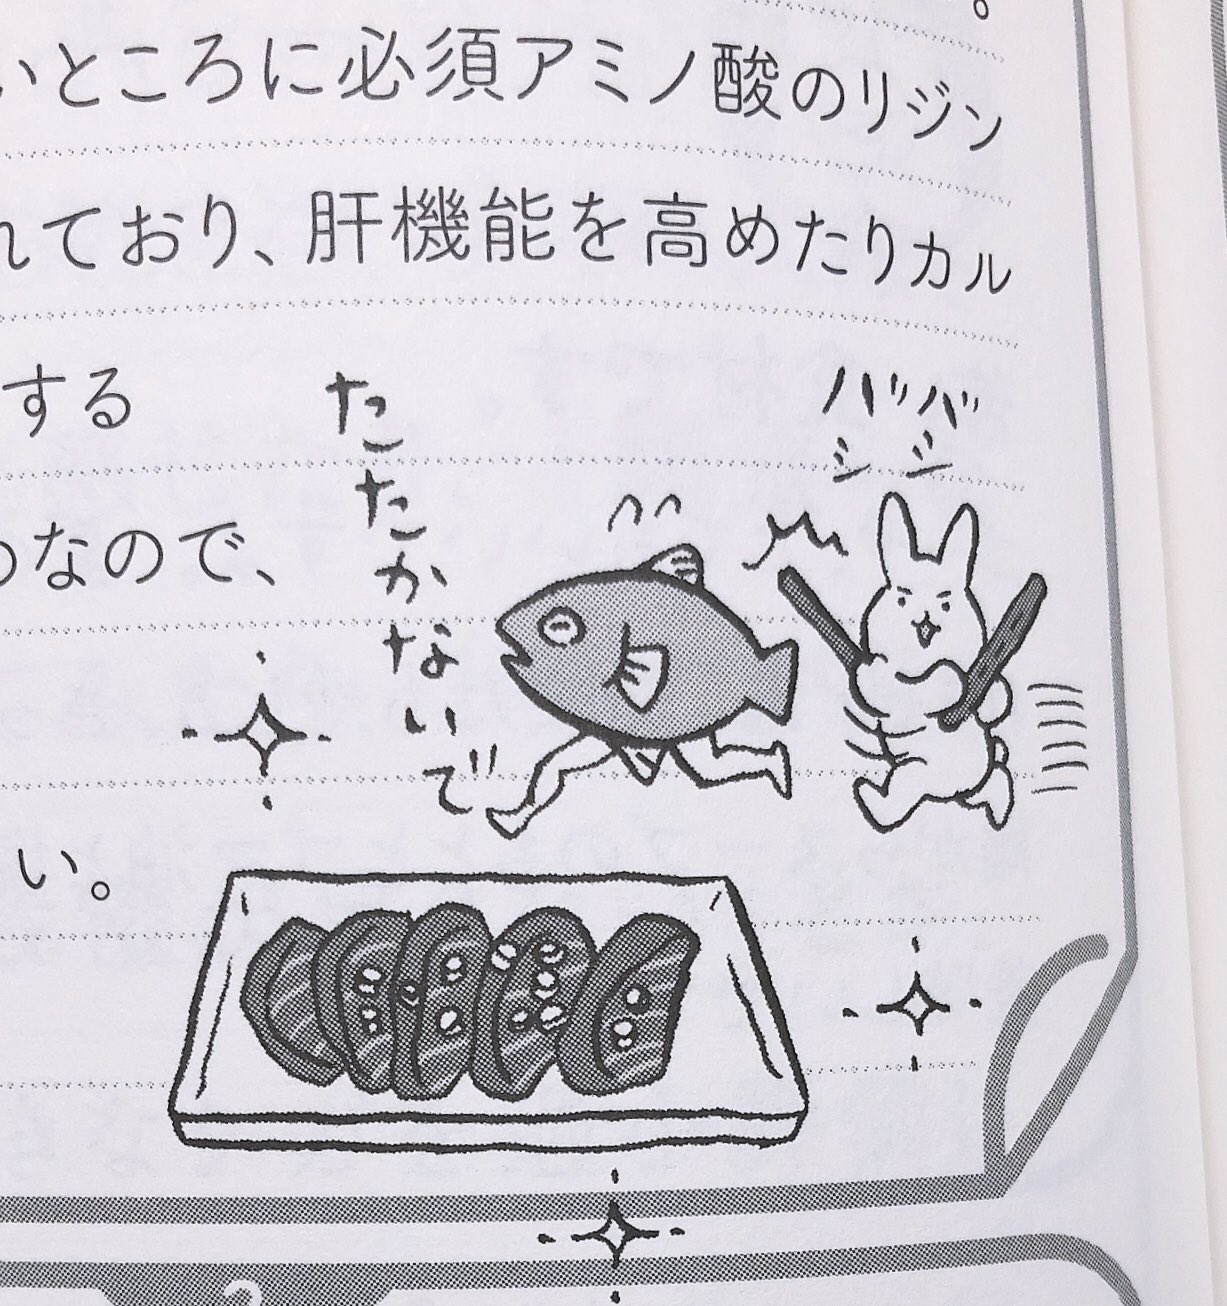 いところに必須アミノ酸のリジン
れており、肝機能を高めたりカル
する
たたかないで
バシ
バシ
なので、
い。